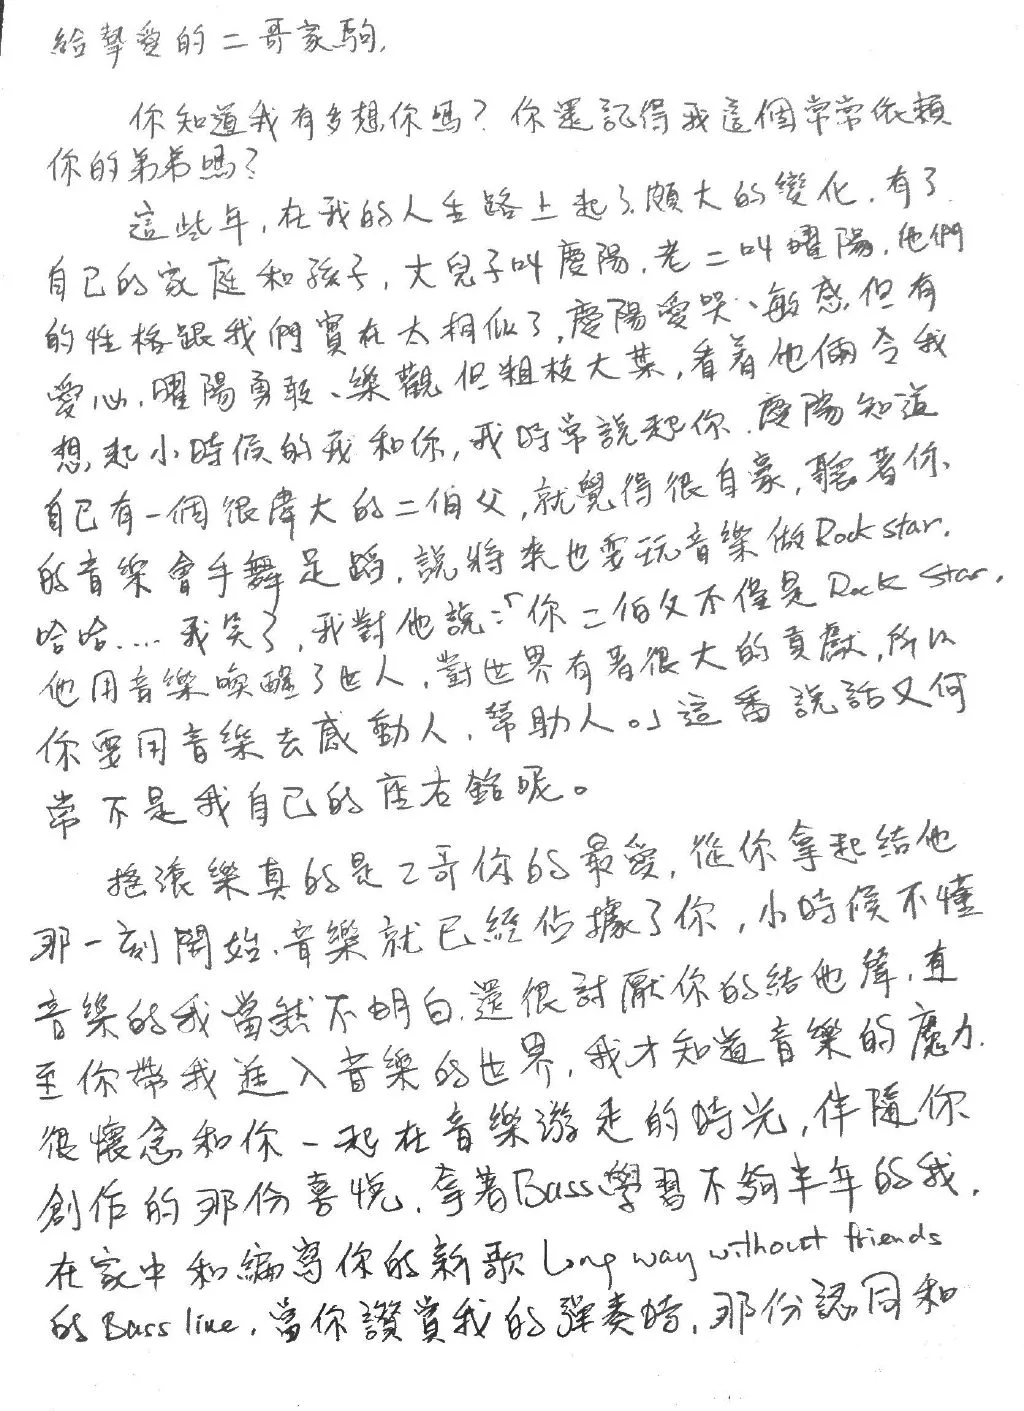 給摯愛的二哥家駒,
你知道我有多想你嗎？你還記得我這個常常依賴
你的弟弟嗎？
這些年,在我的人生路上起了頗大的變化,有了
自己的家庭和孩子,大兒子叫慶陽,老二叫曜陽,他們
的性格跟我們實在太相似了,慶陽愛哭、敏感但有
愛心,曜陽勇敢、樂觀但粗枝大葉,看著他倆令我
想起小時候的我和你,我時常說起你,慶陽知道
自己有一個很偉大的二伯父,就覺得很自豪,聽著你
的音樂會手舞足蹈,說將來也要玩音樂做Rock star,
哈哈....我笑了,我對他說：「你二伯父不僅是Rock Star,
他用音樂喚醒了世人,對世界有著很大的貢獻,所以
你要用音樂去感動人,幫助人。」這番說話又何
常不是我自己的座右銘呢。
搖滾樂真的是二哥你的最愛,從你拿起結他
那一刻開始,音樂就已經佔據了你,小時候不懂
音樂的我當然不明白,還很討厭你的結他聲,直
至你帶我進入音樂的世界,我才知道音樂的魔力,
很懷念和你一起在音樂游走的時光,伴隨你
創作的那份喜悅,拿著Bass學習不夠半年的我,
在家中和編寫你的新歌Long way without friends
的Bass line,當你讚賞我的彈奏時,那份認同和